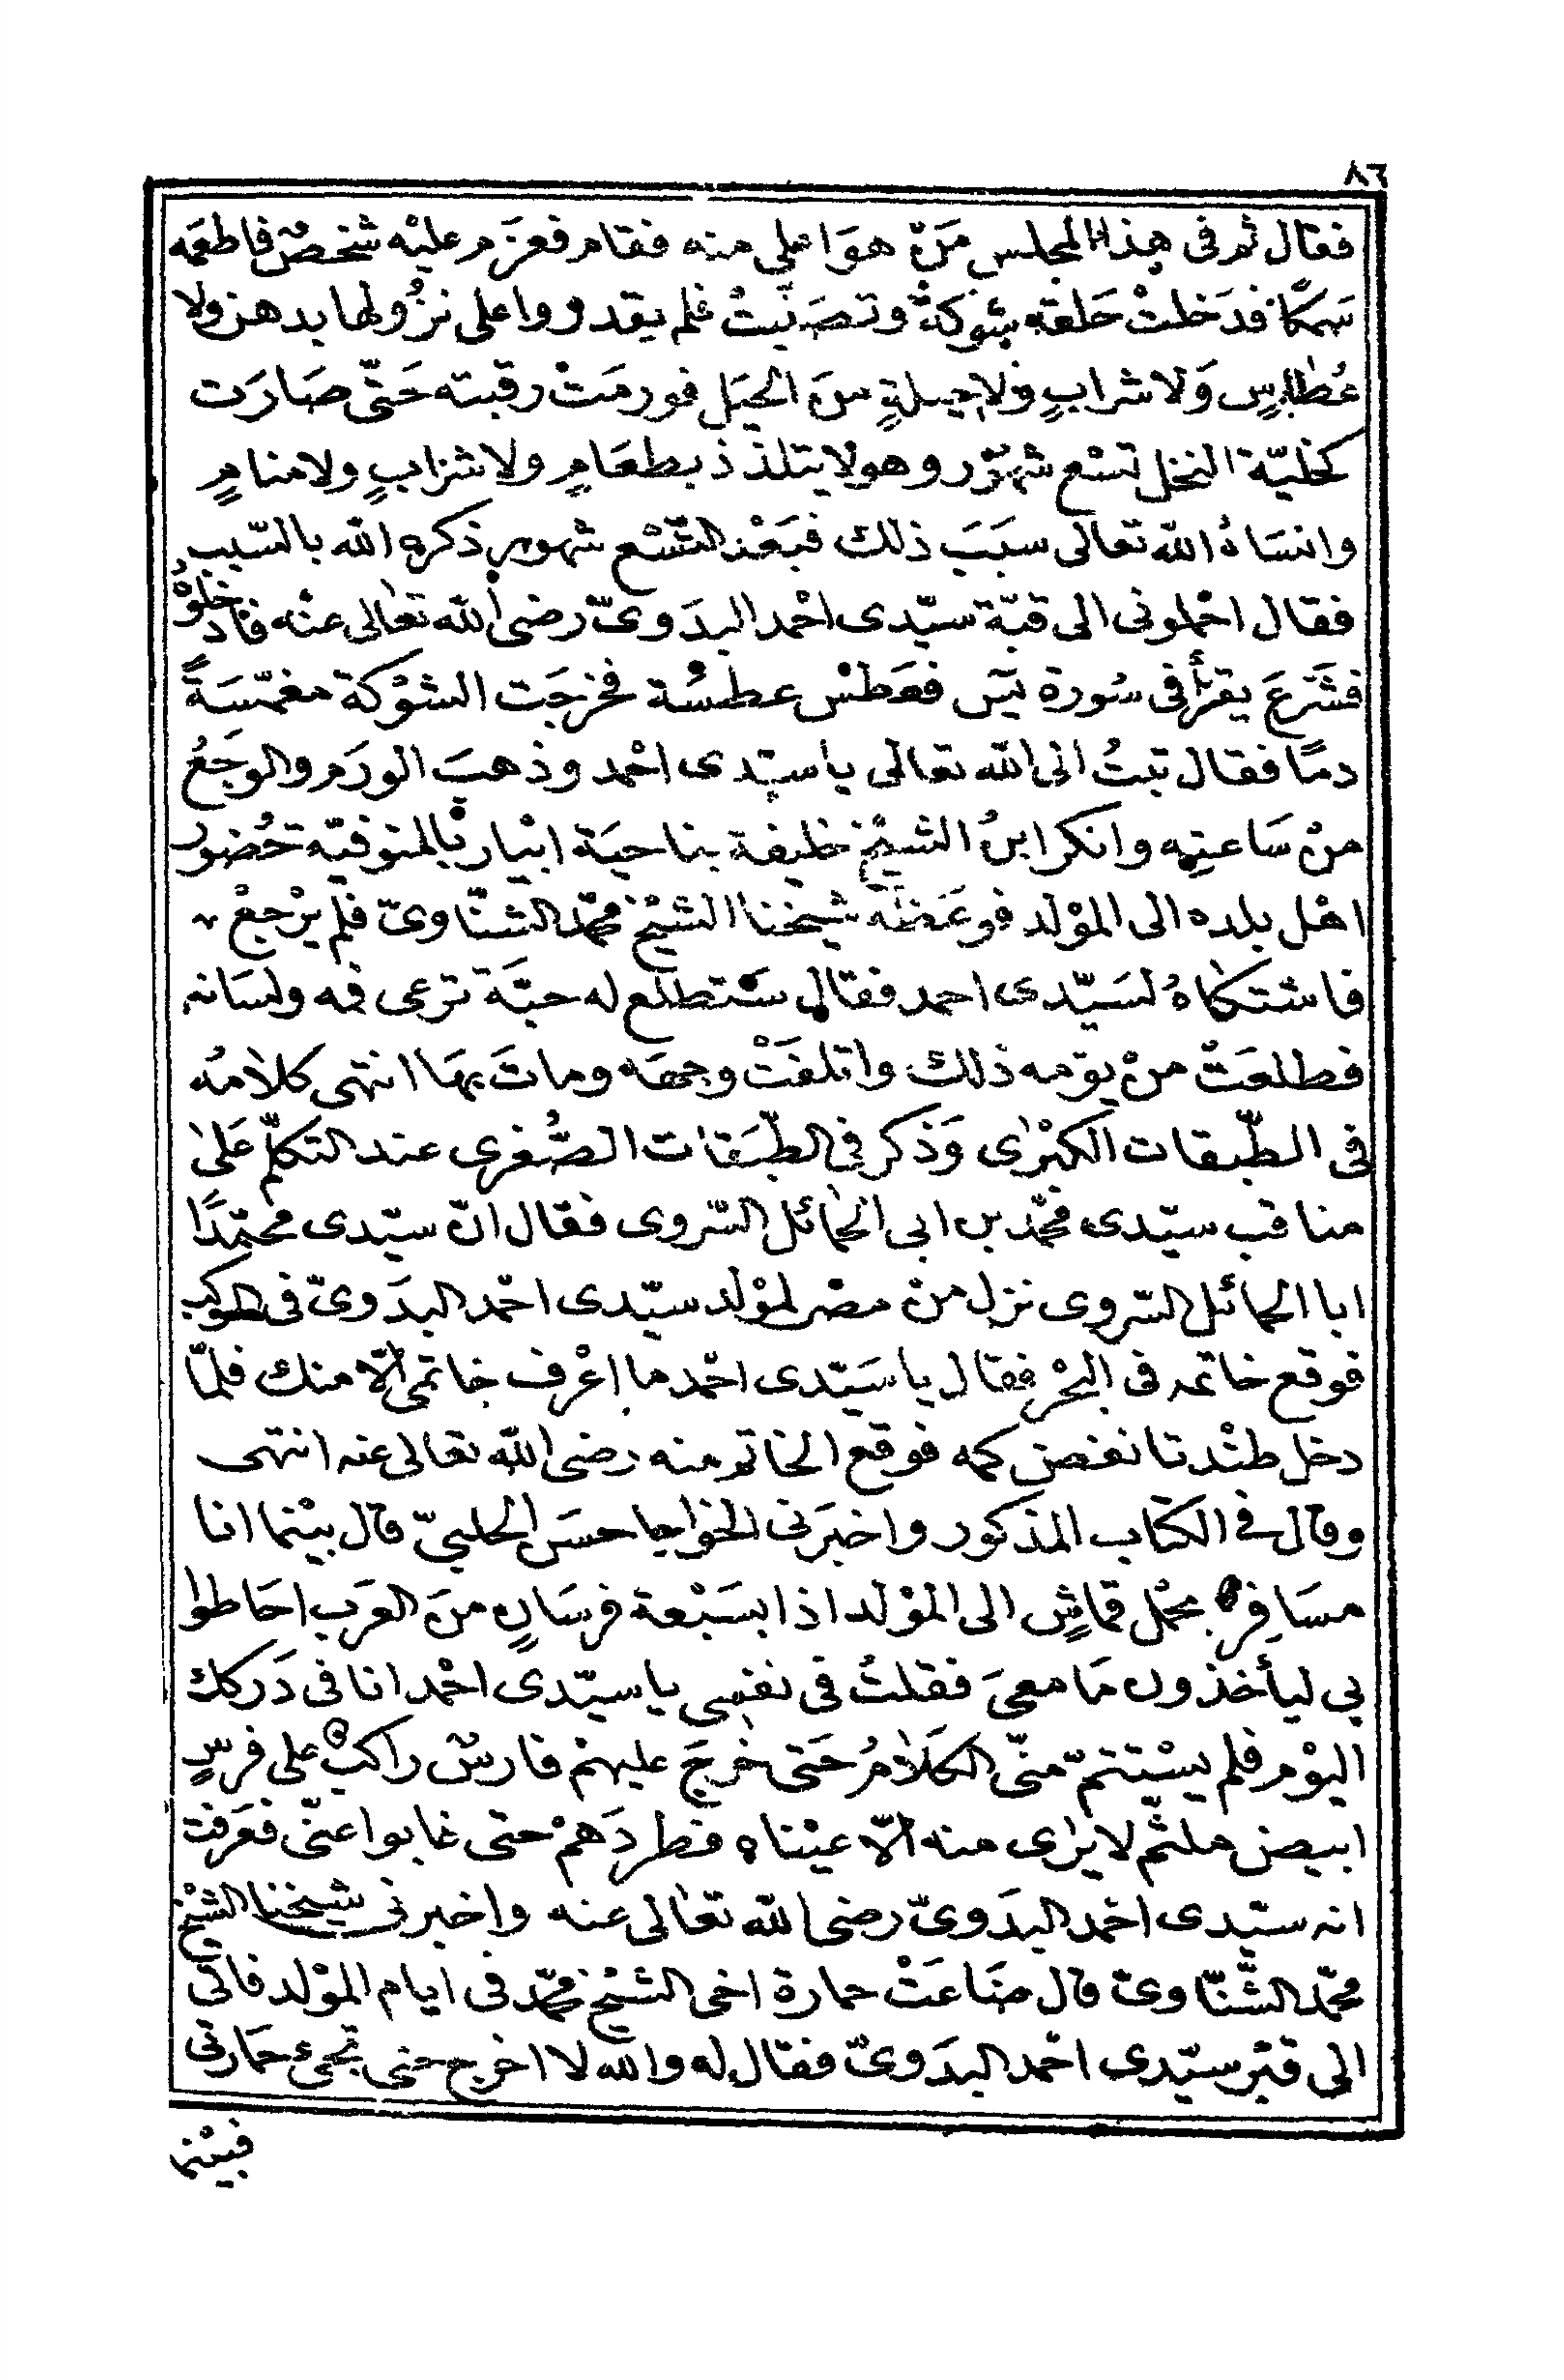 ٨٦
فقال ثم فى هذا المجلس مَنْ هوَ اعلى منه فقام فعزَم عليْه شخصٌ فاطعَمه
سَمكًا فدَخلتْ حَلقه شوكةٌ وتصَلّبتْ فلم يقدروا على نزُولها بدهن ولا
عُطاسٍ وَلا شرابٍ ولا حيلةٍ منَ الحيَل فورمَتْ رقبته حَتّى صَارَت
كخليّة النخل تسْع شهُوْر وهو لا يتلذذ بطعَامٍ ولا شرَابٍ ولا منامٍ
وانسَاهُ الله تعالى سبَبَ ذلك فبَعْد التّسْع شهور ذكره الله بالسّبب
فقال احْملونى الى قبّة سيّدى احْمد البدَوىّ رضى الله تعالى عنْه فادخلوْهُ
فشَرعَ يقرأ فى سُورة يٓس فعَطسْ عطسْة فخرجَت الشوْكة مغمّسَةً
دمًا فقال تبتُ الى الله تعالى يا سيّدى احْمد وذهبَ الورَم والوجَعُ
منْ سَاعتِه وانكر ابنُ الشيْخ خليفة بناحيَة ابْيار بالمنوفيّة حُضور
اهْل بلده الى الموْلد فوعَظَهُ شيخنا الشيْخ محمّد الشنّاوىّ فلم يرْجعْ
فاشتكاهُ لسَيّدى احمد فقال سَتطلع له حبَّة ترعى فمه ولسَانه
فطلعَتْ منْ يوْمه ذلك واتلفَتْ وجهَه وماتَ بهَا انتهى كلامُه
فى الطّبقات الكبْرٰى وَذكر فى الطّبَقات الصُّغرى عند التكلّم عَلىٰ
مناقب سيّدى محمّد بن ابى الحمائل السّروى فقال انّ سيّدى محمّدًا
ابا الحمائل السّروى نزل منْ مصْر لموْلد سيّدى احْمد البدَوىّ فى المركب
فوقع خاتمه فى البحْر فقال يا سَيّدى احْمد ما اعْرف خاتمى الّا منك فلمّا
دخل طنْدتا نفض كمه فوقع الخاتم منه رضى الله تعالى عنه انتهى
وقال فى الكتاب المذكور واخبَرَنى الخواجا حسَن الحلبىّ قال بيْنما انا
مسَافِرٌ بحمْل قماشٍ الى الموْلد اذا بسَبْعة فرسَانٍ منَ العرَب احَاطوا
بى ليأخذون مَا معىَ فقلتُ فى نفسى يا سيّدى احْمد انا فى دَركك
اليوْم فلم يسْتتمّ منّى الكلَامُ حَتى خرَجَ عليهمْ فارسٌ راكبٌ على فرسٍ
ابيض ملثّم لا يرٰى منه الّا عيْناه فطردَهمْ حتى غابوا عنّى فعَرفت
انه سيّدى احْمد البدَوىّ رضى الله تعٰالى عنه واخبرنى شيخنا الشيْخ
محمّد الشّنّاوىّ قال ضَاعَتْ حمارة اخى الشيْخ محمّد فى ايام الموْلد فاتى
الى قبْر سيّدى احْمد البدَوىّ فقال له والله لا اخرج حتى تجئ حمَارتى
فبيْنما